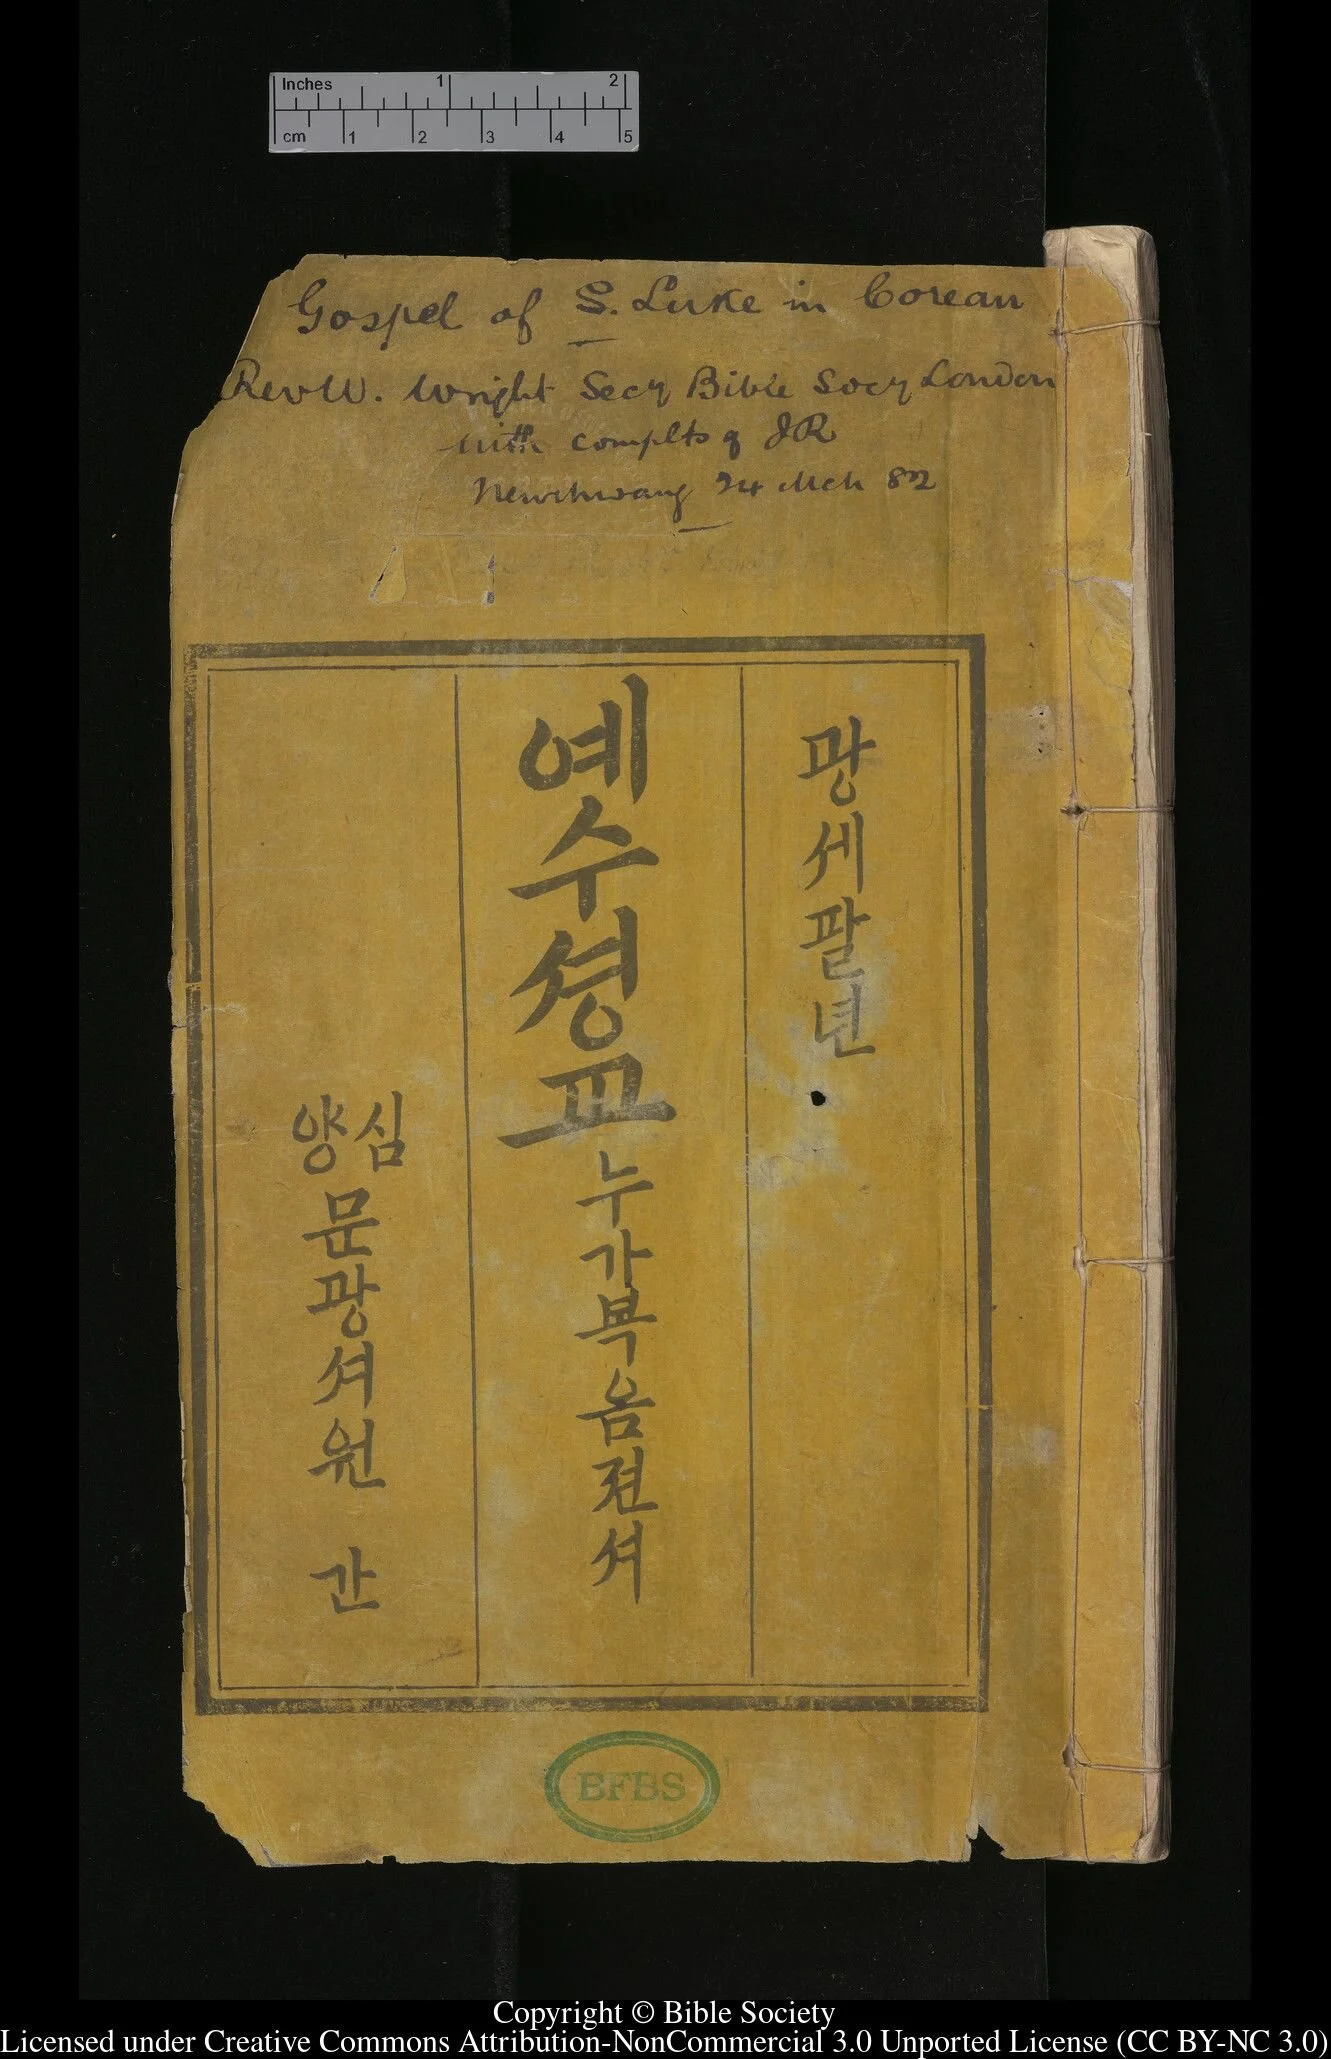 Inches 1 2
cm 1 2 3 4 5
Gospel of S. Luke in Corean
Rev W. Wright Secy Bible Socy London
with complts of JR
Newchwang 24 Mch 82
광셰팔년
예수셩교
누가복음젼셔
심양
문광셔원 간
BFBS
Copyright © Bible Society
Licensed under Creative Commons Attribution-NonCommercial 3.0 Unported License (CC BY-NC 3.0)